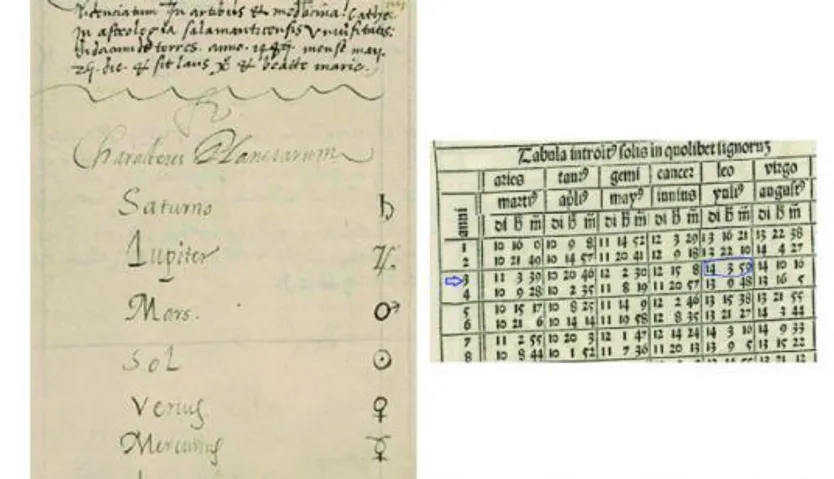 In artibus & medicina! Cathe
In astrologia salamanticensis
didacum de torres. anno. mense may.
die. & sit laus & beate marie.
Characteres Planetarum
Saturno ♄
Jupiter ♃
Mars. ♂
Sol ☉
Venus ♀
Mercurius ☿
Tabula introitꝰ solis in quolibet signoruꝫ
aries taurꝰ gemi cancer leo virgo
anni martiꝰ apliꝰ mayꝰ iunius yuliꝰ augustꝰ
di h m̄ di h m̄ di h m̄ di h m̄ di h m̄ di h m̄
1 10 16 0 10 9 8 11 14 52 12 3 29 13 16 21 13 22 38
2 10 21 49 10 14 57 11 20 41 12 9 18 13 22 10 14 4 27
3 11 3 39 10 20 46 12 2 30 12 15 8 14 3 59 14 10 16
4 10 9 28 10 2 35 11 8 19 11 20 57 13 9 48 13 16 5
5 10 15 17 10 8 25 11 14 9 12 2 46 13 15 38 13 21 55
6 10 21 6 10 14 14 11 19 58 12 8 35 13 21 27 14 3 44
7 11 2 55 10 20 3 12 1 47 12 14 24 14 3 16 14 9 33
8 10 8 44 10 1 52 11 7 36 11 20 13 13 9 5 13 15 22